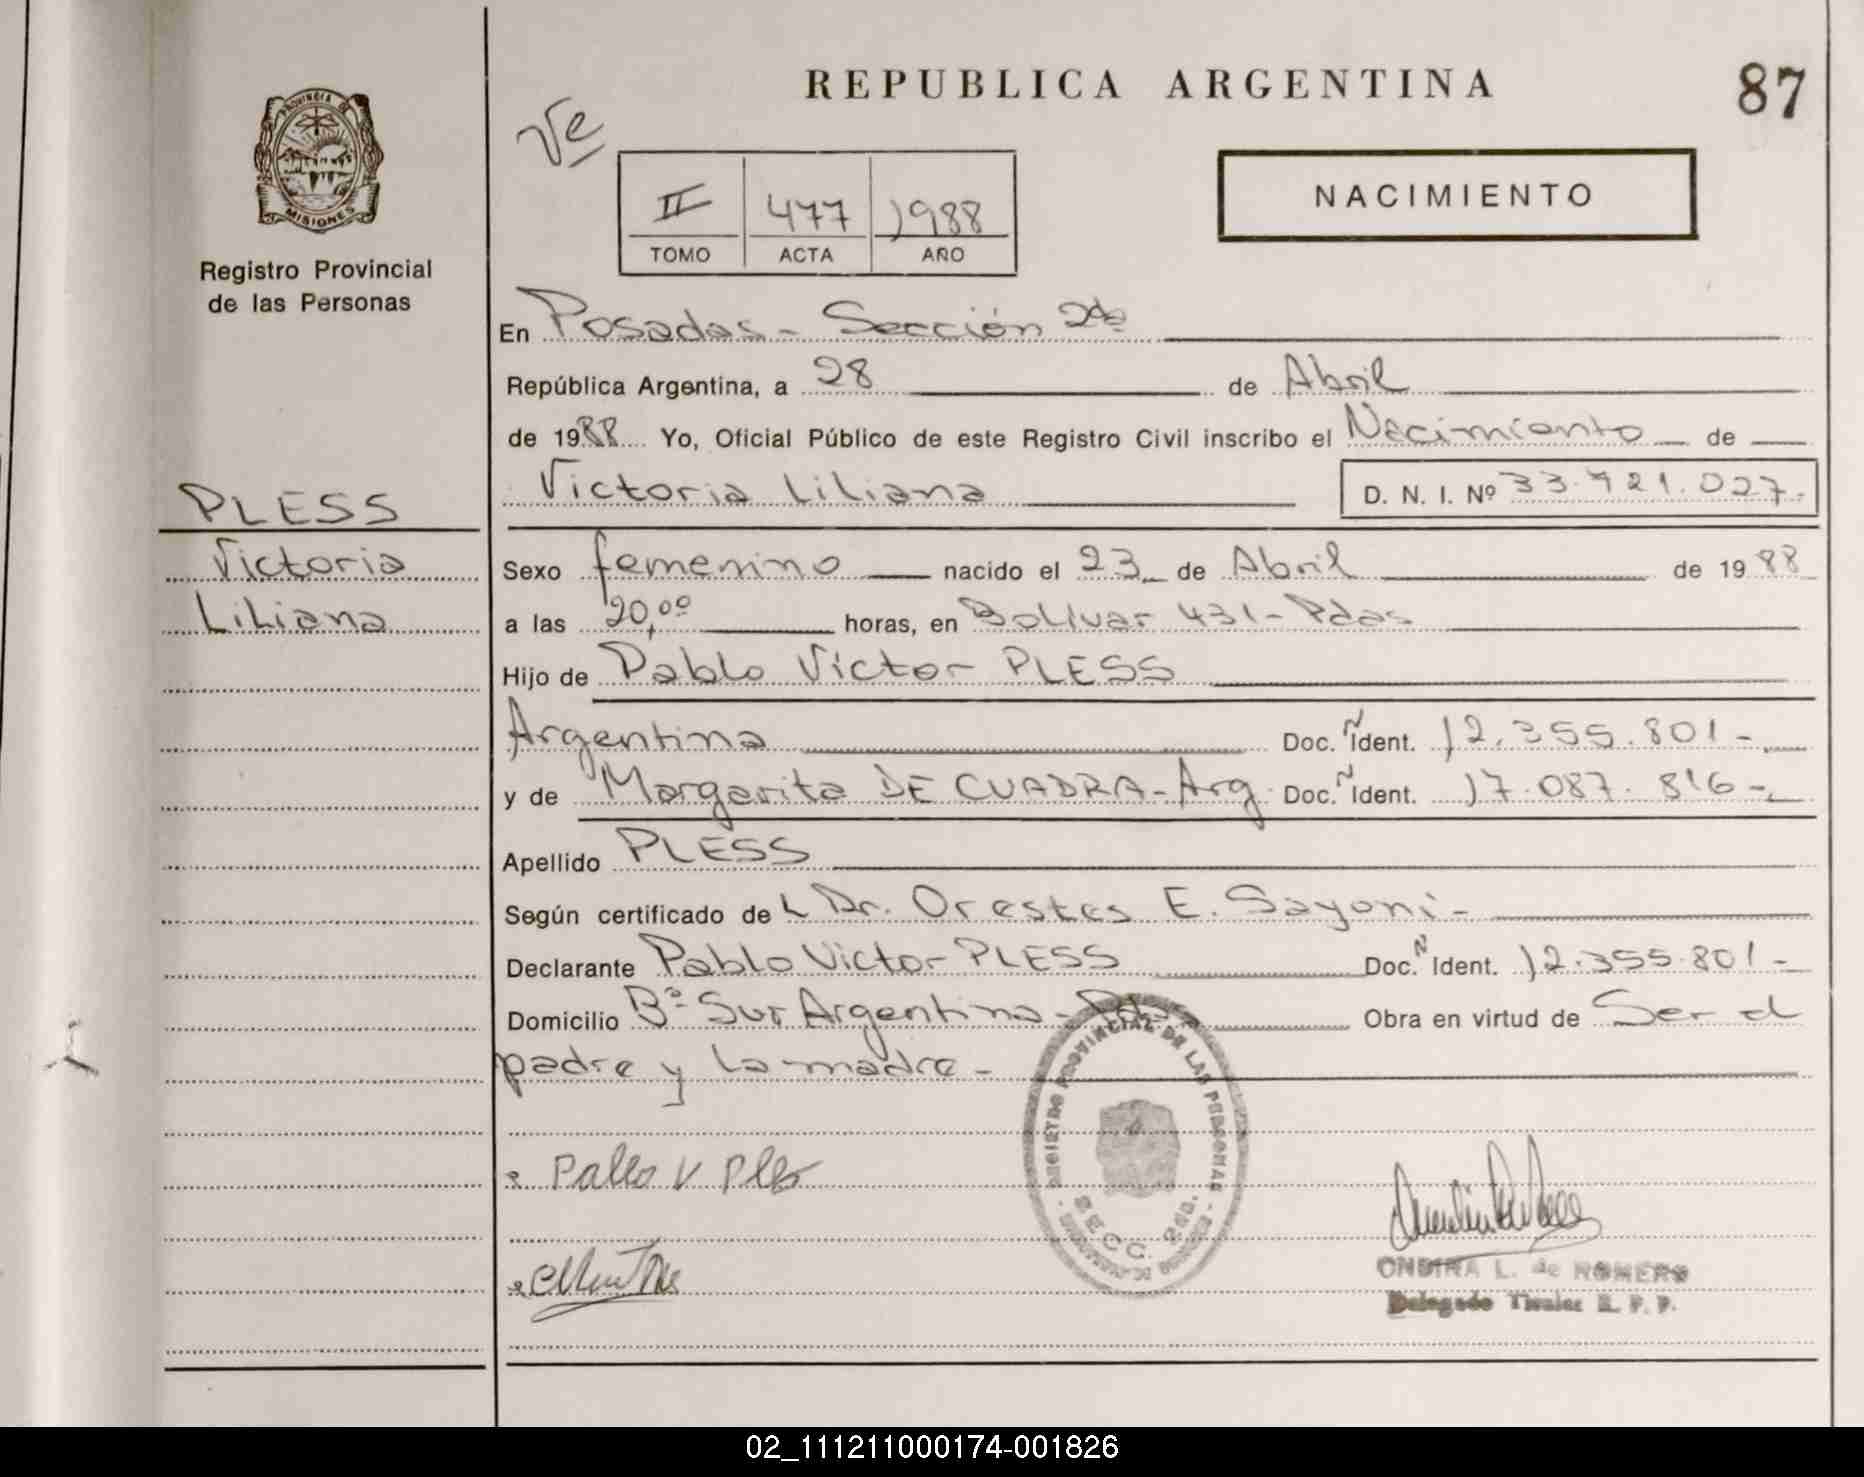 REPUBLICA ARGENTINA
87
Ve
PROVINCIA DE
MISIONES
Registro Provincial
de las Personas
II 477 1988
TOMO ACTA AÑO
NACIMIENTO
En Posadas - Sección 2da
República Argentina, a 28 de Abril
de 1988 Yo, Oficial Público de este Registro Civil inscribo el Nacimiento de
Victoria Liliana D. N. I. Nº 33.721.027.-
PLESS
Victoria
Liliana
Sexo femenino nacido el 23 de Abril de 1988
a las 20,00 horas, en Bolívar 431 - Pdas
Hijo de Pablo Victor PLESS
Argentina Doc. N Ident. 12.355.801 -
y de Margarita DE CUADRA - Arg. Doc. N Ident. 17.087.816 -
Apellido PLESS
Según certificado de L Dr. Orestes E. Sayoni -
Declarante Pablo Victor PLESS Doc. N Ident. 12.355.801 -
Domicilio Bº Sur Argentina - Obra en virtud de Ser el
padre y la madre -
REGISTRO PROVINCIAL DE LAS PERSONAS
SECC. 2da.
Pablo V Pless
ONDINA L. de ROMERO
Delegado Titular R. P. P.
02_111211000174-001826